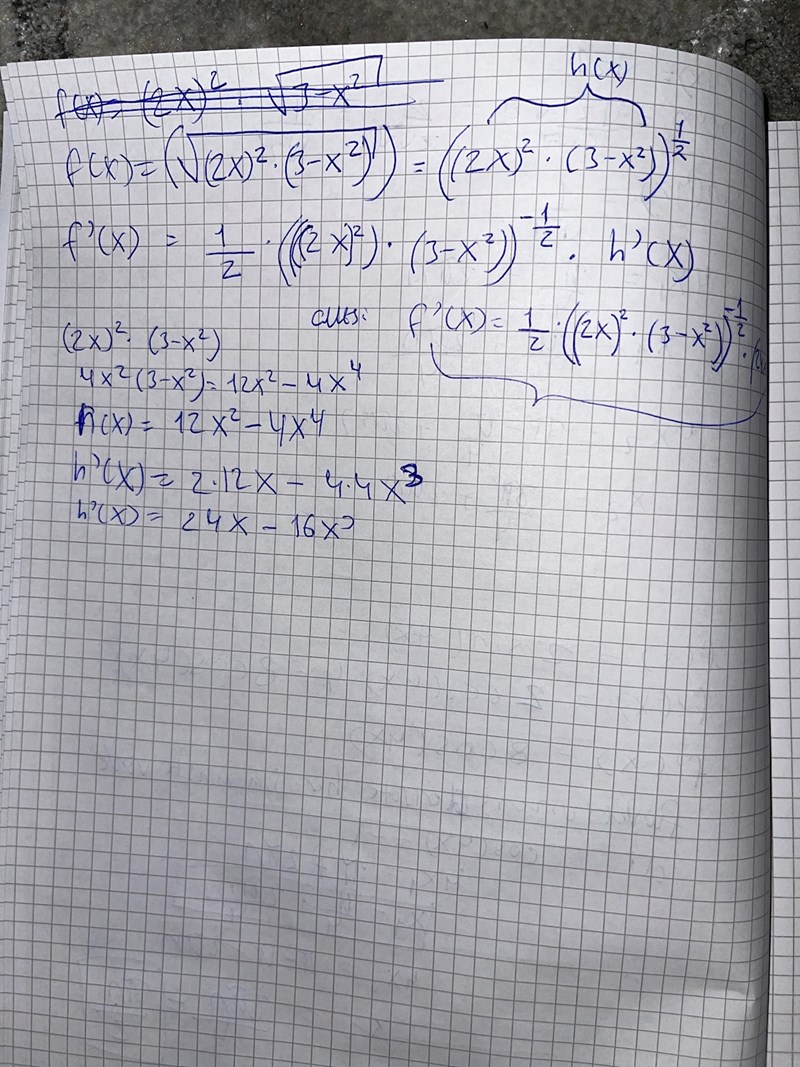 f(x) = (2x)² · √3-x²
h(x)
f(x) = (√(2x)² · (3-x²)) = ((2x)² · (3-x²))^½
f'(x) = 1/2 · (((2x)²) · (3-x²))^-½ · h'(x)
(2x)² · (3-x²)
4x²(3-x²) = 12x² - 4x⁴
h(x) = 12x² - 4x⁴
h'(x) = 2·12x - 4·4x³
h'(x) = 24x - 16x³
f'(x) = 1/2 · ((2x)² · (3-x²))^-½ ·